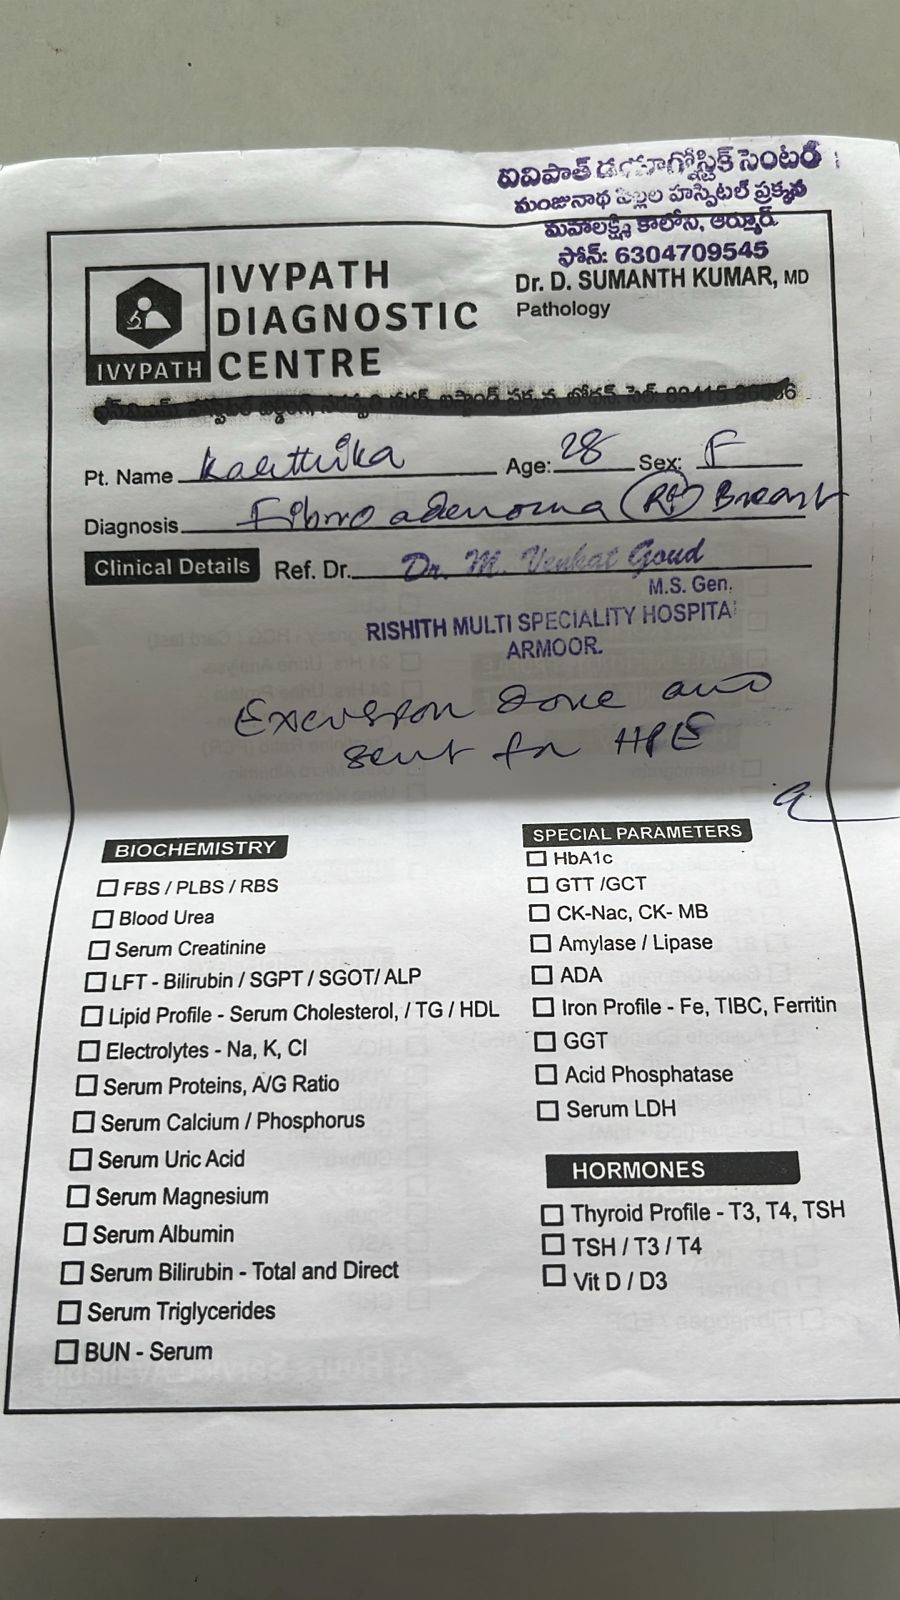 ఐవిపాత్ డయాగ్నోస్టిక్ సెంటర్
మంజునాథ పిల్లల హాస్పిటల్ ప్రక్కన
మహాలక్ష్మి కాలోని, ఆర్మూర్.
ఫోన్: 6304709545
IVYPATH
DIAGNOSTIC
CENTRE
IVYPATH
Dr. D. SUMANTH KUMAR, MD
Pathology
Pt. Name Karthika Age: 28 Sex: F
Diagnosis Fibroadenoma (Rt) Breast
Clinical Details Ref. Dr. Dr. M. Venkat Goud
M.S. Gen.
RISHITH MULTI SPECIALITY HOSPITA
ARMOOR.
Excision done and
sent for HPE
BIOCHEMISTRY
FBS / PLBS / RBS
Blood Urea
Serum Creatinine
LFT - Bilirubin / SGPT / SGOT/ ALP
Lipid Profile - Serum Cholesterol, / TG / HDL
Electrolytes - Na, K, Cl
Serum Proteins, A/G Ratio
Serum Calcium / Phosphorus
Serum Uric Acid
Serum Magnesium
Serum Albumin
Serum Bilirubin - Total and Direct
Serum Triglycerides
BUN - Serum
SPECIAL PARAMETERS
HbA1c
GTT /GCT
CK-Nac, CK- MB
Amylase / Lipase
ADA
Iron Profile - Fe, TIBC, Ferritin
GGT
Acid Phosphatase
Serum LDH
HORMONES
Thyroid Profile - T3, T4, TSH
TSH / T3 / T4
Vit D / D3